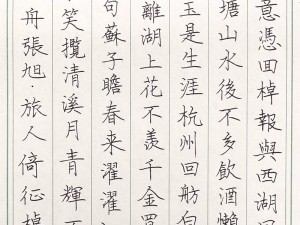 意憑回棹報與西湖
塘山水後不多飲酒懶
玉是生涯杭州回舫白
離湖上花不羨千金買
句蘇子瞻春来濯濯
笑攬清溪月青輝不
舟張旭·旅人倚征棹